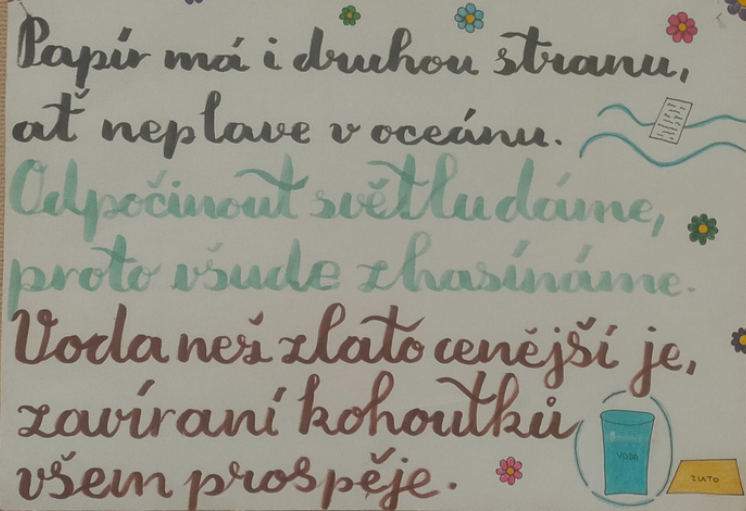 Papír má i druhou stranu,
ať neplave v oceánu.
Odpočinout světlu dáme,
proto všude zhasínáme.
Voda než zlato cenější je,
zavíraní kohoutků
všem prospěje.
VODA
ZLATO